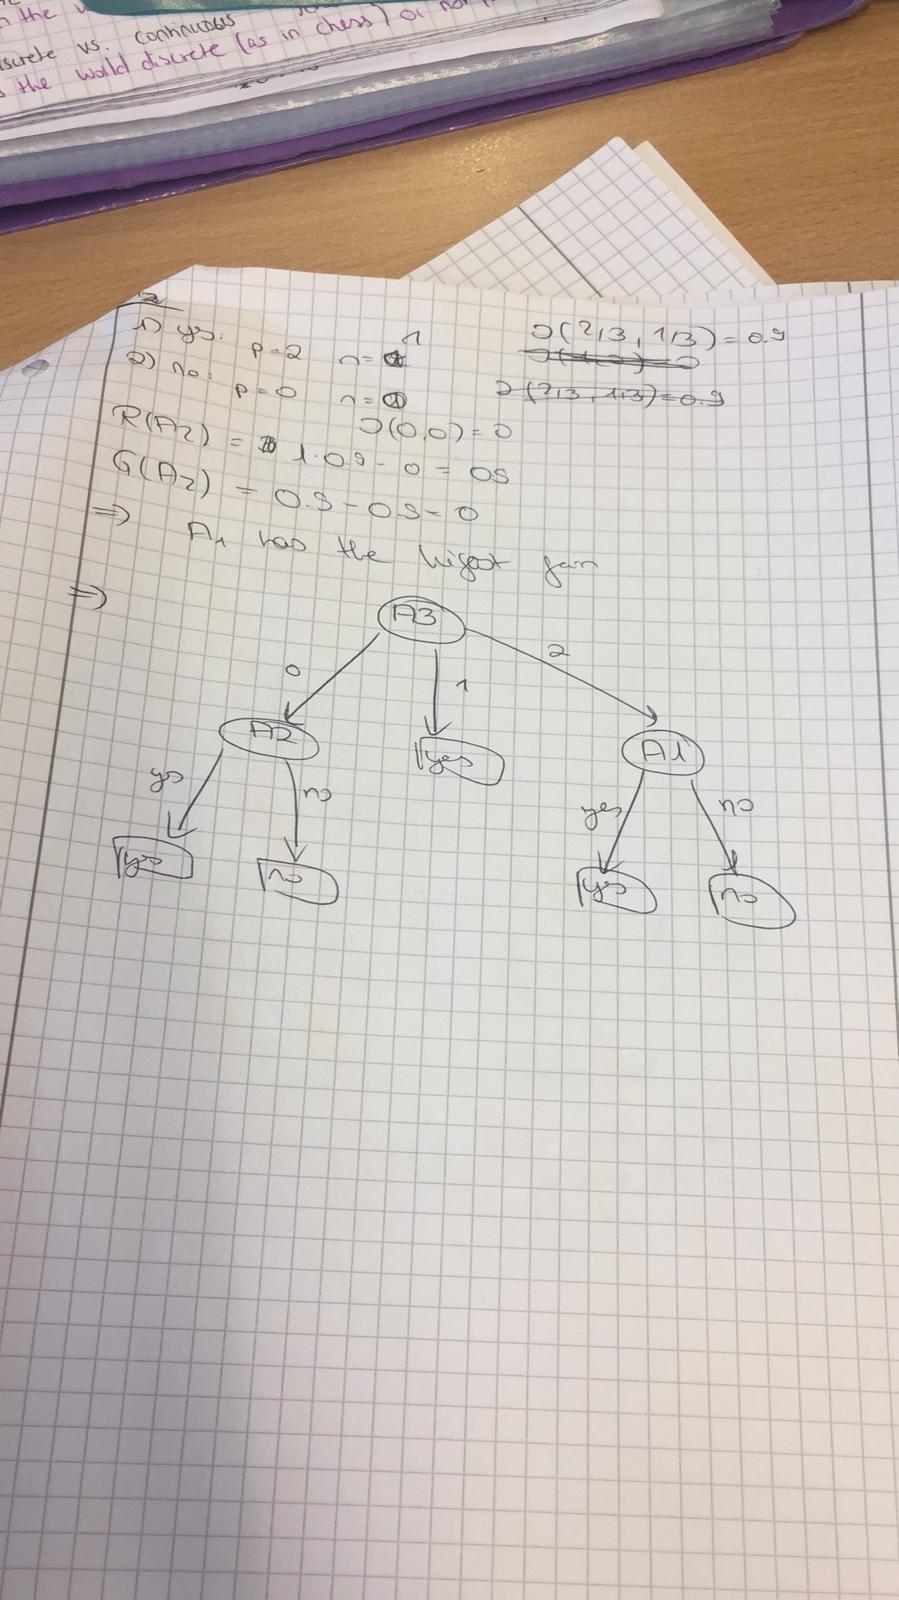 n the
discrete vs. continuous
the world discrete (as in chess) or not
1) yes: p=2 n=1
I(2/3, 1/3) = 0.9
2) no: p=0 n=0
I(2/3, 1/3)=0.9
I(0,0)=0
R(A2) = 1·0.9 - 0 = 0.9
G(A2) = 0.9-0.9=0
=> A1 has the higest gain
=>
A3
0 1 2
A2 yes A1
yes no yes no
yes no yes no